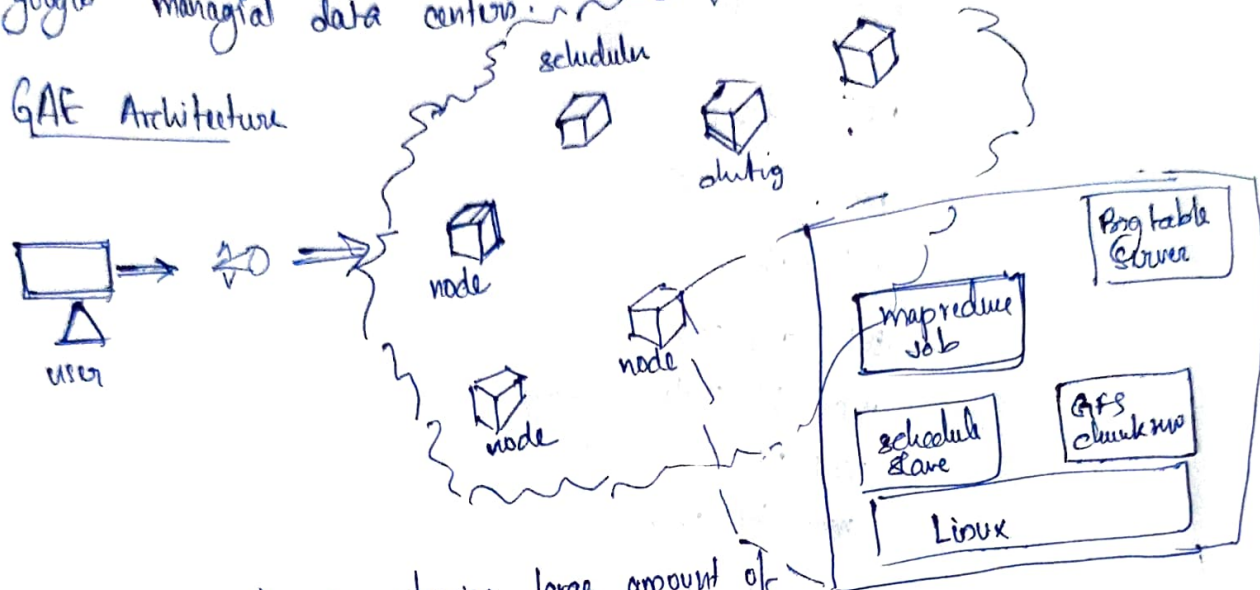 google managial data centers.
GAE Architecture
scheduler
node
node
node
user
Bigtable
Server
mapreduce
Job
schedule
slave
GFS
Linux
large amount of